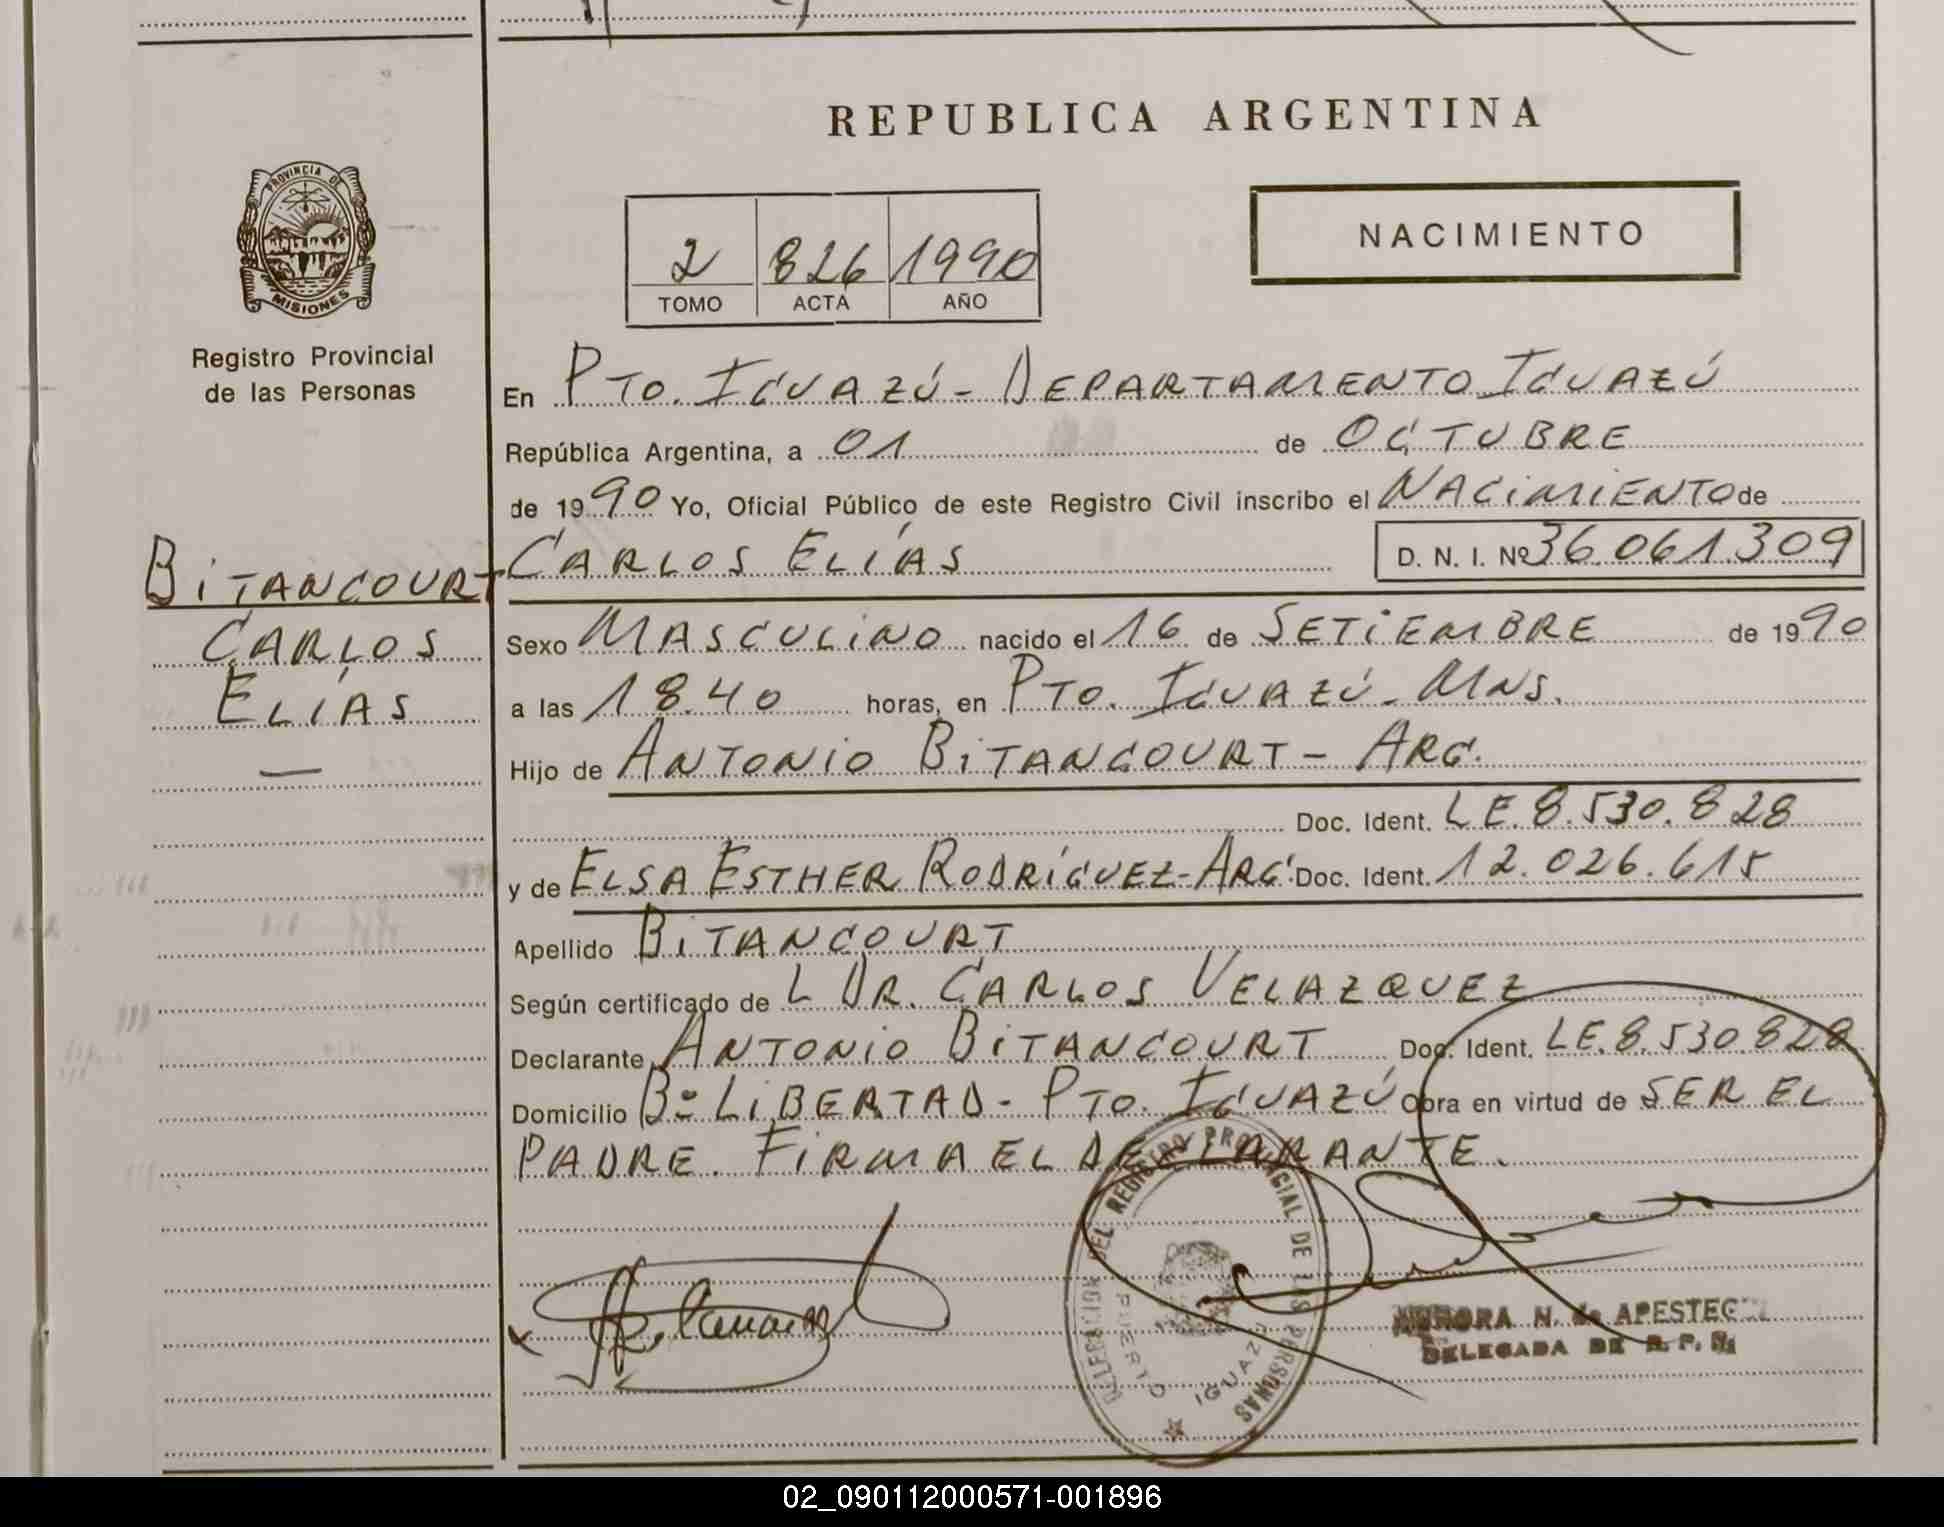 REPUBLICA ARGENTINA
PROVINCIA DE
MISIONES
NACIMIENTO
2 826 1990
TOMO ACTA AÑO
Registro Provincial
de las Personas
En PTO. IGUAZÚ - DEPARTAMENTO IGUAZÚ
República Argentina, a 01 de OCTUBRE
de 1990 Yo, Oficial Público de este Registro Civil inscribo el NACIMIENTO de
BITANCOURT CARLOS ELÍAS D. N. I. Nº 36.061.309
CARLOS
ELÍAS
Sexo MASCULINO nacido el 16 de SETIEMBRE de 1990
a las 18.40 horas, en PTO. IGUAZÚ - MNS.
Hijo de ANTONIO BITANCOURT - ARG.
Doc. Ident. LE. 8.530.828
y de ELSA ESTHER RODRÍGUEZ - ARG. Doc. Ident. 12.026.615
Apellido BITANCOURT
Según certificado de L DR. CARLOS VELAZQUEZ
Declarante ANTONIO BITANCOURT Doc. Ident. LE. 8.530.828
Domicilio Bº LIBERTAD - PTO. IGUAZÚ Obra en virtud de SER EL
PADRE. FIRMA EL DECLARANTE.
DELEGACION DEL REGISTRO PROVINCIAL DE LAS PERSONAS
PUERTO IGUAZU
N. de
DELEGADA DE R. P.
02_090112000571-001896